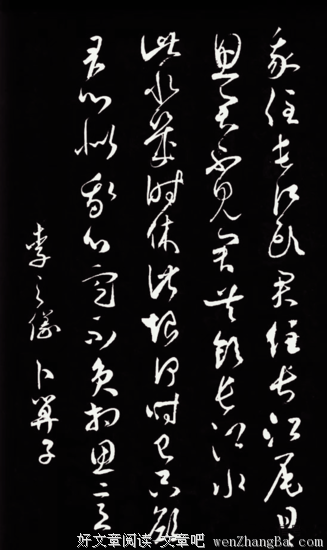 我住長江頭君住長江尾日日
思君不見君共飲長江水
此水幾時休此恨何時已只願
君心似我心定不負相思意
李之儀 卜算子
好文章阅读-文章吧 wenZhangBa.com